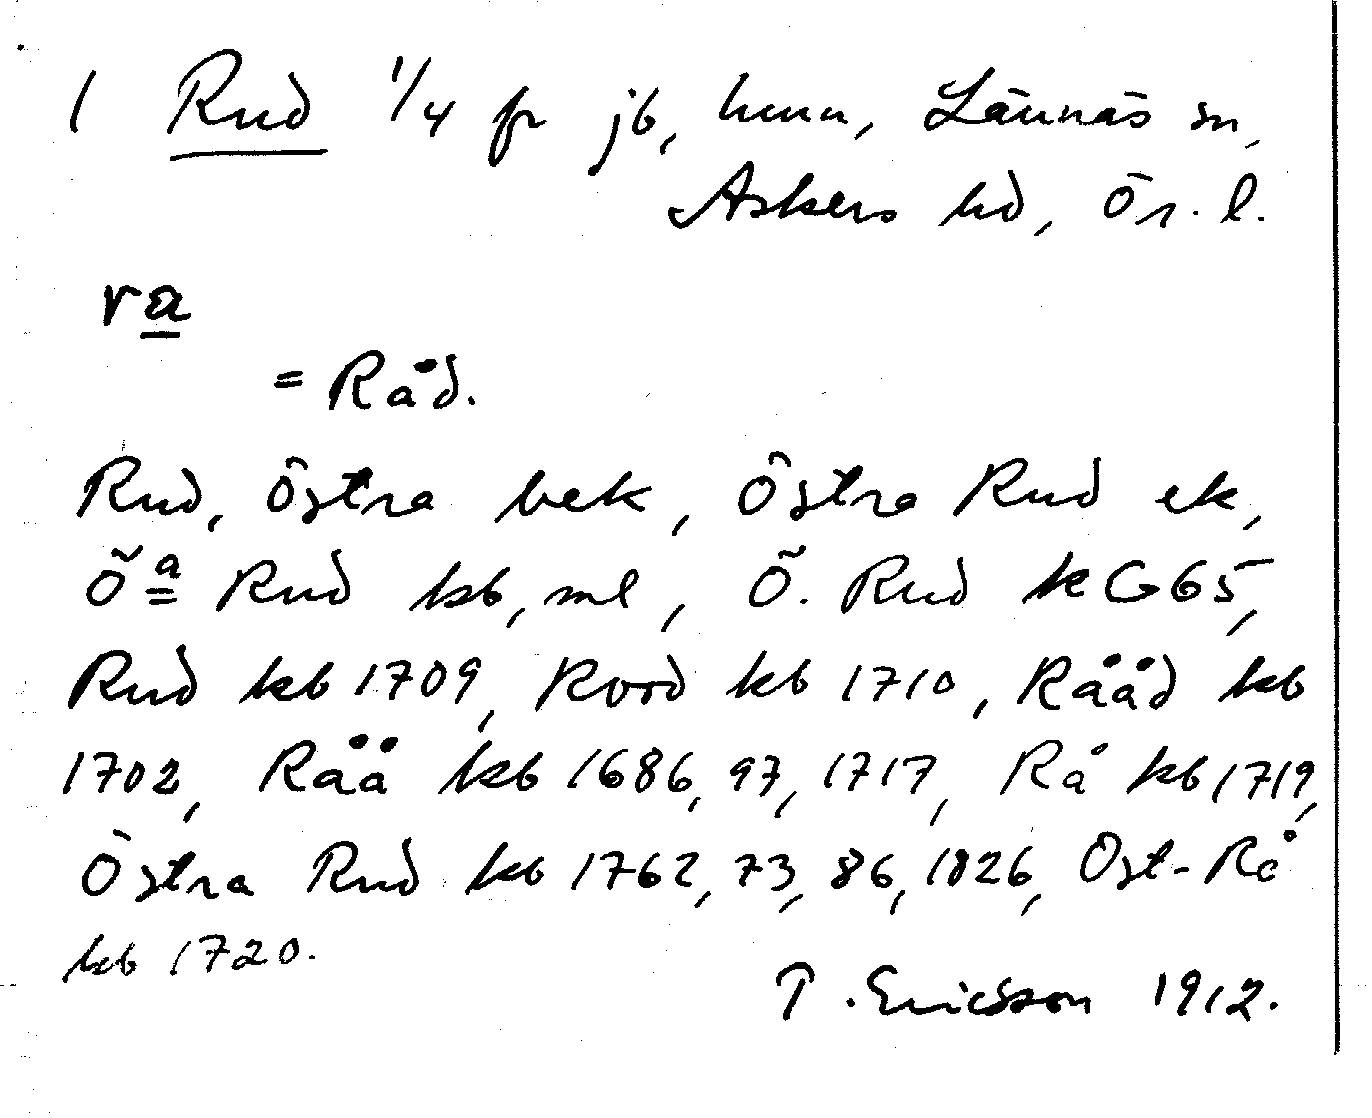 1 Rud 1/4 fr jb, hmn, Lännäs sn,
Askers hd, Ör. l.
ra
= Råd.
Rud, Östra bek, Östra Rud ek,
Öa Rud kb, ml, Ö. Rud k G65,
Rud kb 1709, Rood kb 1710, Rååd kb
1702, Råå kb 1686, 97, 1717, Rå kb 1719,
Östra Rud kb 1762, 73, 86, 1826, Ost-Rå
kb 1720.
T. Ericsson 1912.